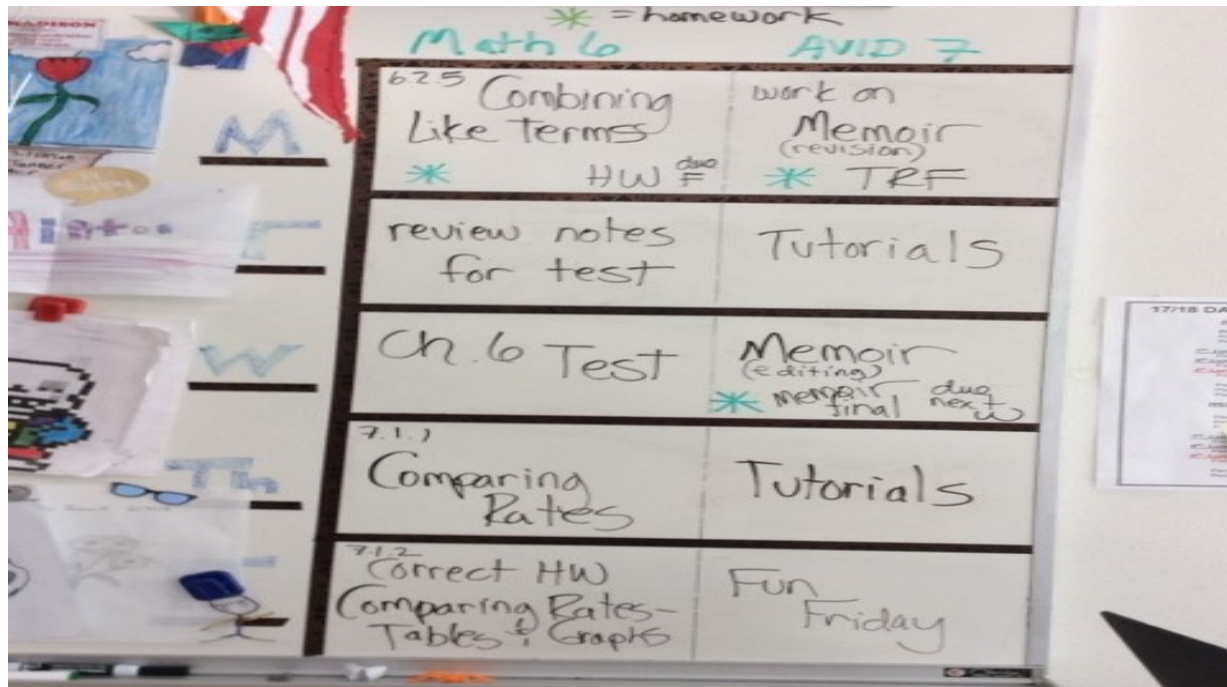 MADISON
* = homework
Math 6
AVID 7
M
6.2.5 Combining
Like Terms
* HW due F
work on
Memoir
(revision)
* TRF
T
review notes
for test
Tutorials
W
Ch. 6 Test
Memoir
(editing)
* memoir final due next W
Th
7.1.1
Comparing
Rates
Tutorials
7.1.2
Correct HW
Comparing Rates-
Tables & Graphs
Fun
Friday
17/18 DA